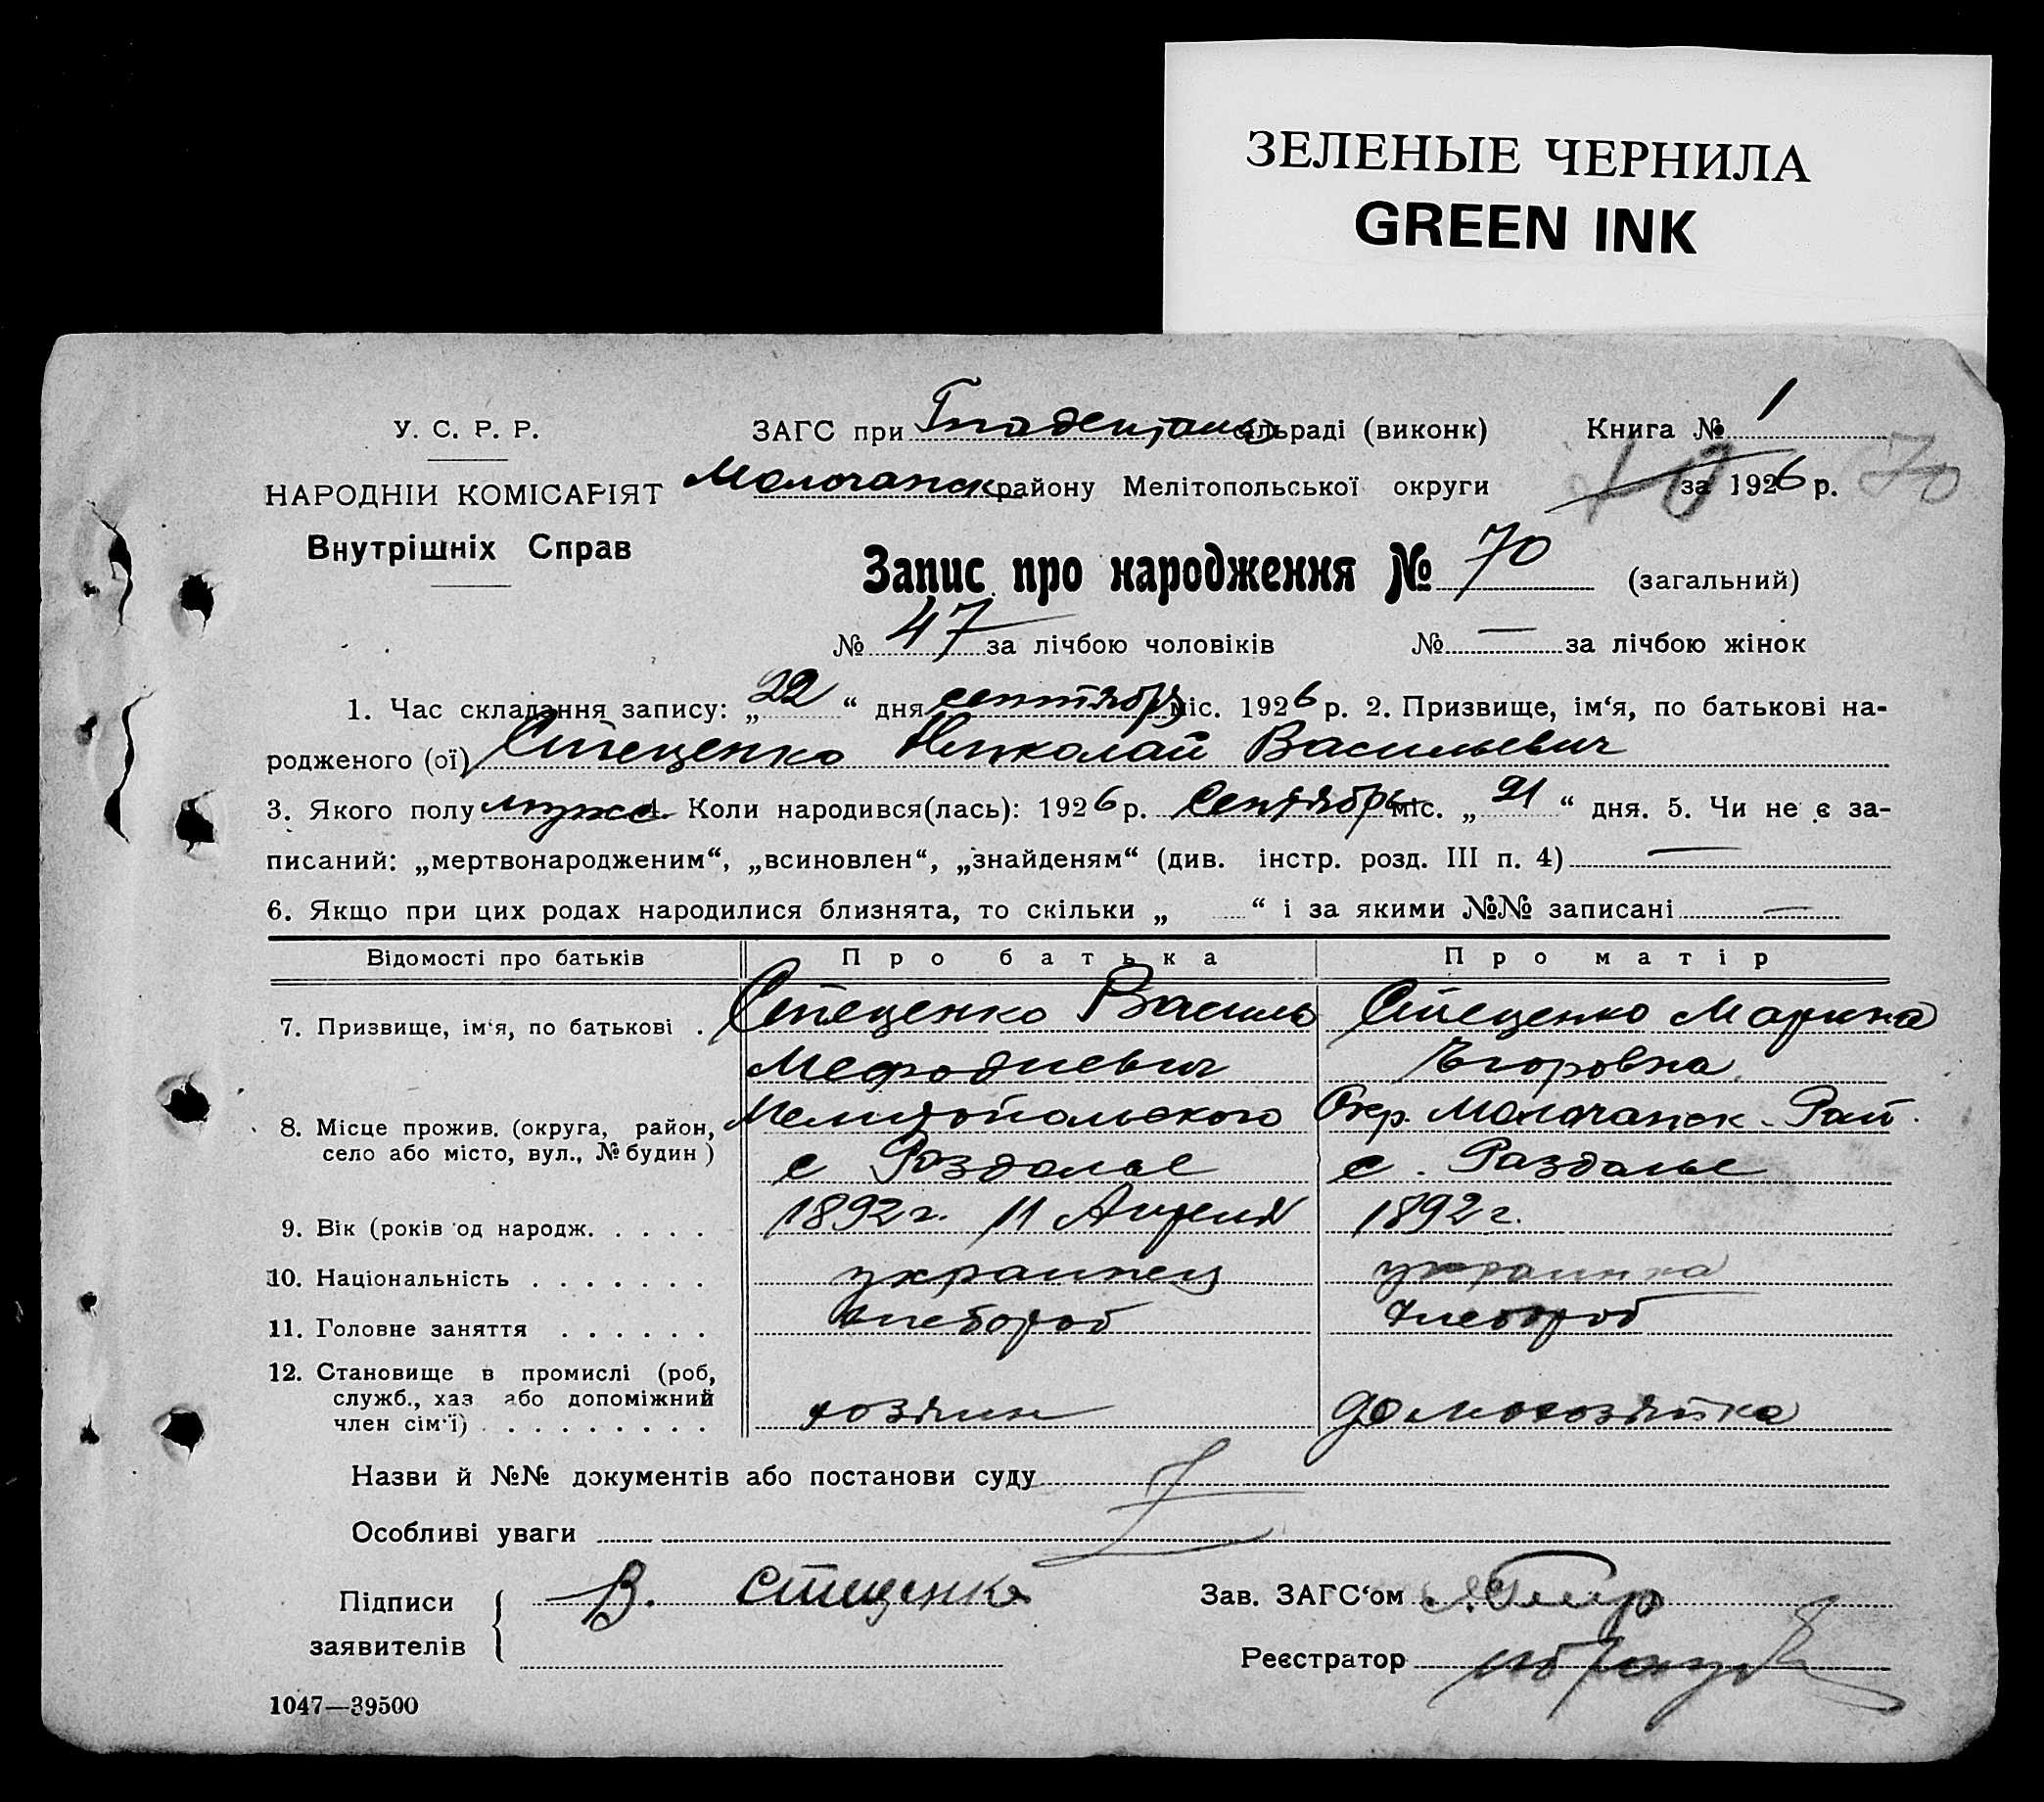 ЗЕЛЕНЫЕ ЧЕРНИЛА
GREEN INK
У. С. Р. Р.
НАРОДНІЙ КОМІСАРІЯТ
Внутрішніх Справ
ЗАГС при сільраді (виконк) Книга № 1
Молочанск району Мелітопольської округи за 1926 р. 70
Запис про народження № 70 (загальний)
№ 47 за лічбою чоловіків № — за лічбою жінок
1. Час складання запису: „22“ дня сентября міс. 1926 р. 2. Призвище, ім‘я, по батькові на-
родженого (ої) Стеценко Николай Васильевич
3. Якого полу мужс. 4. Коли народився(лась): 1926 р. Сентябрь міс. „21“ дня. 5. Чи не є за-
писаний: „мертвонародженим“, „всиновлен“, „знайденям“ (див. інстр. розд. III п. 4) —
6. Якщо при цих родах народилися близнята, то скільки „ “ і за якими №№ записані —
Відомості про батьків
Про батька
Про матір
7. Призвище, ім‘я, по батькові .
Стеценко Василь
Мефодиевич
Стеценко Марина
Егоровна
8. Місце прожив. (округа, район,
село або місто, вул., № будин)
Мелитопольского Окр. Молочанск. Рай.
с Роздолье
с. Раздолье
9. Вік (років од народж. . . . .
1892 г. 11 Апреля
1892 г.
10. Національність . . . . . . .
украинец
украинка
11. Головне заняття . . . . . .
хлебороб
хлебороб
12. Становище в промислі (роб,
служб., хаз або допоміжний
член сім‘ї) . . . . . . . . .
хозяин
домохозяйка
Назви й №№ документів або постанови суду
Особливі уваги
Підписи
заявителів
В. Стеценко
Зав. ЗАГС‘ом
Реєстратор
1047—39500